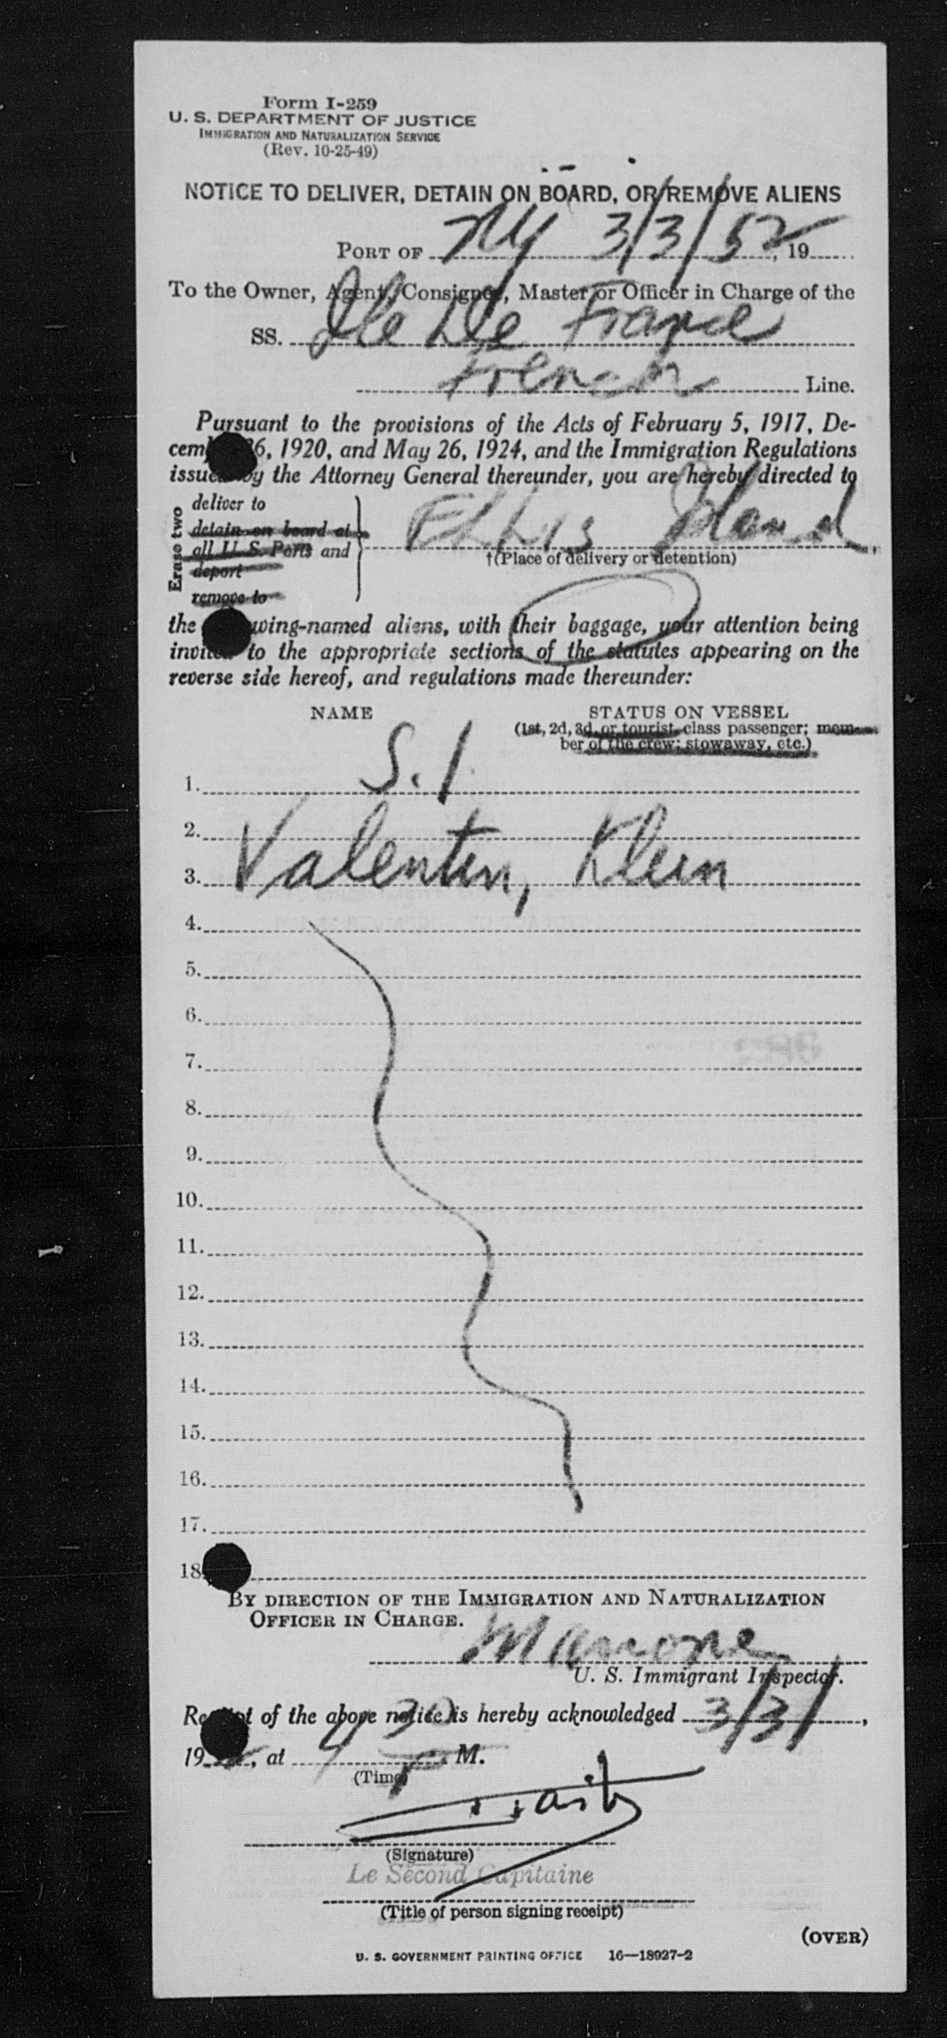 Form I-259
U. S. DEPARTMENT OF JUSTICE
IMMIGRATION AND NATURALIZATION SERVICE
(Rev. 10-25-49)
NOTICE TO DELIVER, DETAIN ON BOARD, OR REMOVE ALIENS
PORT OF NY 3/3/52, 19
To the Owner, Agent, Consignee, Master or Officer in Charge of the
SS. Ile De France
French Line.
Pursuant to the provisions of the Acts of February 5, 1917, De-
cem 26, 1920, and May 26, 1924, and the Immigration Regulations
issued by the Attorney General thereunder, you are hereby directed to
Erase two
deliver to
detain on board at
all U. S. Ports and
deport
remove to
Ellis Island
†(Place of delivery or detention)
the wing-named aliens, with their baggage, your attention being
invited to the appropriate sections of the statutes appearing on the
reverse side hereof, and regulations made thereunder:
NAME STATUS ON VESSEL
(1st, 2d, 3d, or tourist class passenger; mem-
ber of the crew; stowaway, etc.)
1. S. I
2.
3. Valentin, Klein
4.
5.
6.
7.
8.
9.
10.
11.
12.
13.
14.
15.
16.
17.
18.
BY DIRECTION OF THE IMMIGRATION AND NATURALIZATION
OFFICER IN CHARGE.
Marrone
U. S. Immigrant Inspector.
Receipt of the above notice is hereby acknowledged 3/3/,
19, at 4 30 P M.
(Time)
(Signature)
Le Second Capitaine
(Title of person signing receipt)
(OVER)
U. S. GOVERNMENT PRINTING OFFICE 16—18927-2